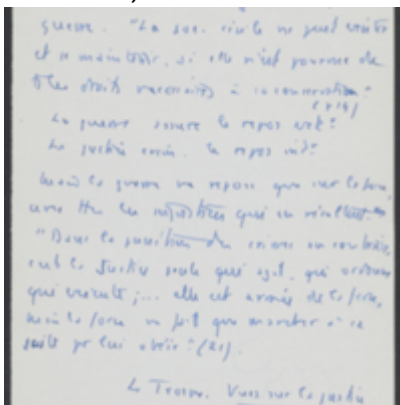 guerre. "La soc. civile ne peut exister
et se maintenir, si elle n'est pourvue de
ts les droits nécessaires à sa conservation"
La guerre assure le repos ext:
La justice crim. le repos int:
mais la guerre ne repose que sur la force,
"Dans la punition du crime au contraire,
c'est la Justice seule qui agit, qui ordonne
qui exécute;... elle est armée de la force,
mais la force ne fait que marcher à sa
suite pr lui obéir" (21).
Le Trosne. Vues sur la justice